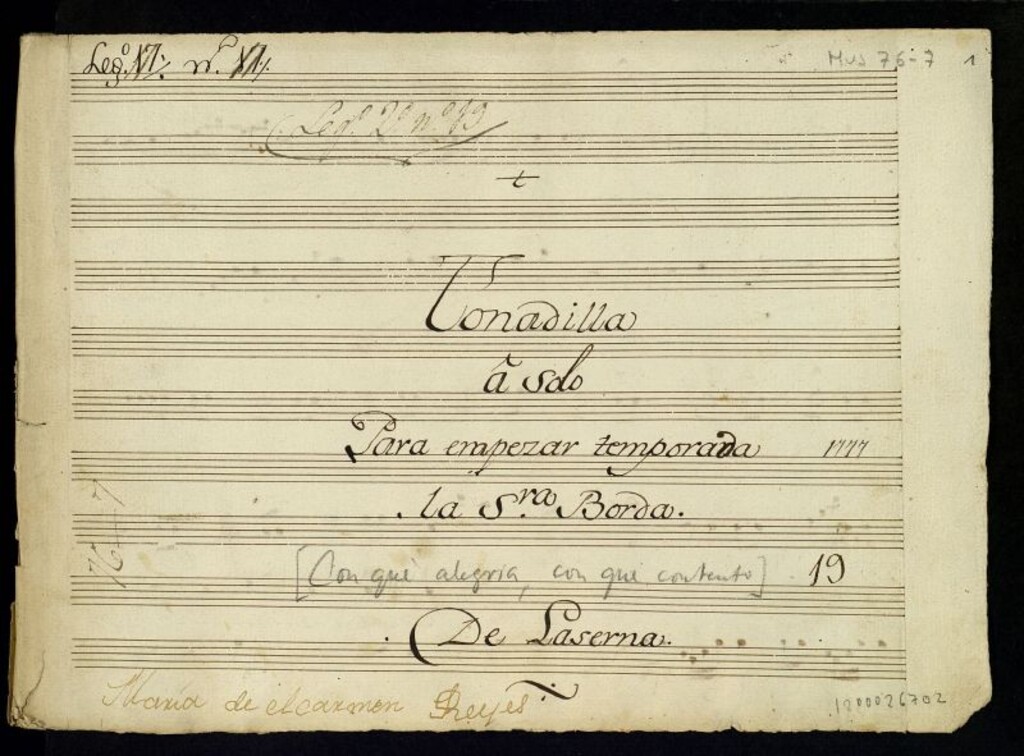 Leg.º VI. n.º VI.
Mus 76-7 1
Leg.º 2.º n.º 13
t
Tonadilla
â solo
Para empezar temporada 1777
la S.ra Borda.
76-7
[Con qué alegría, con qué contento] 19
De Laserna.
María de el carmen Reyes
1200026702